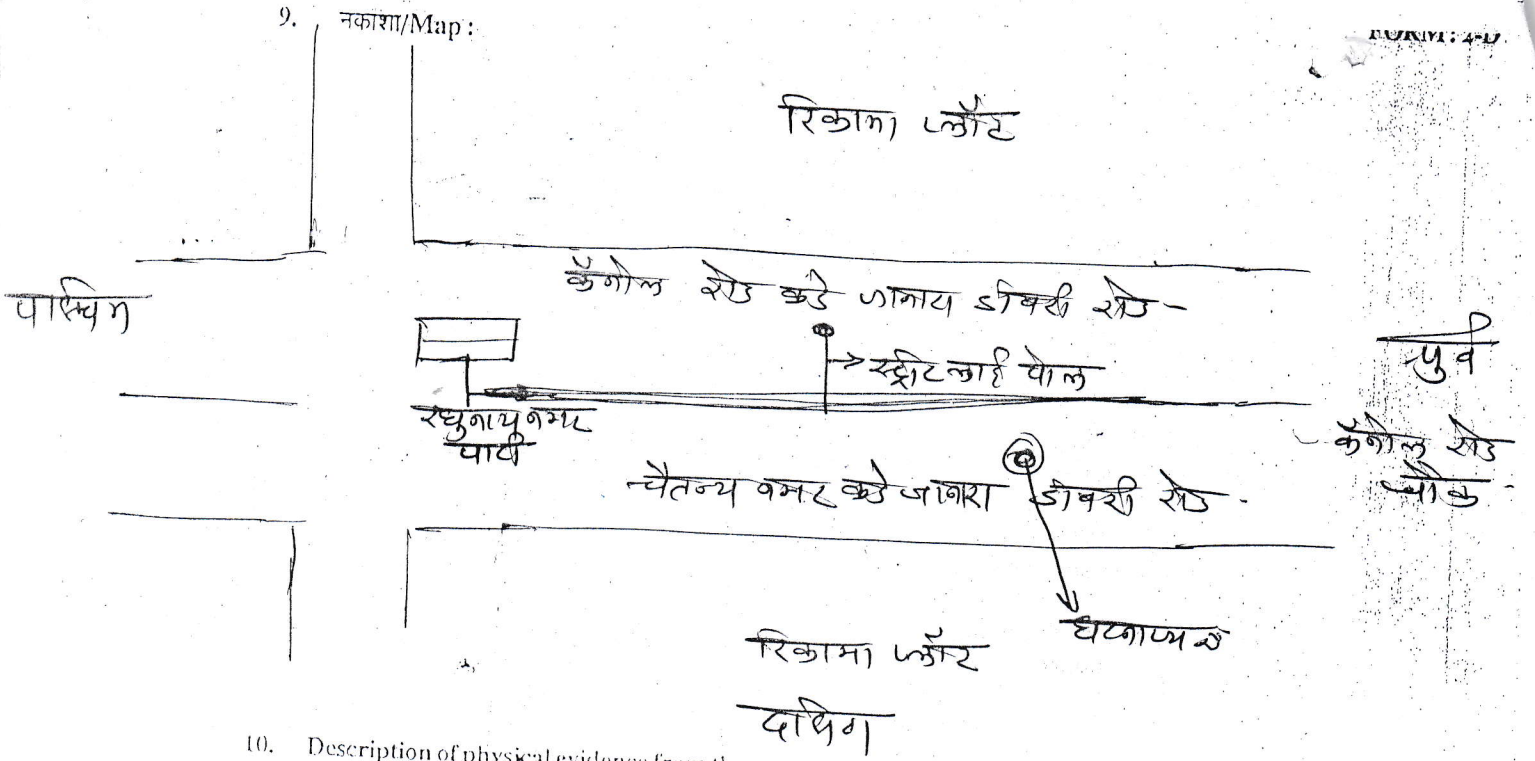 9. नकाशा/Map :
FORM : 2-D
रिकामा प्लॉट
कॅनोल रोड कडे जानारा डांबरी रोड -
पश्चिम
पुर्व
स्ट्रीट लाईट पोल
रघुनाथ नगर
पाटी
कॅनोल रोड
चौक
चैतन्य नगर कडे जानारा डांबरी रोड -
घटनास्थळ
रिकामा प्लॉट
दक्षिण
10. Description of physical evidence from the